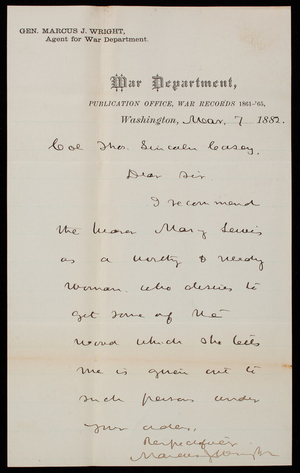 GEN. MARCUS J. WRIGHT,
Agent for War Department.
War Department,
PUBLICATION OFFICE, WAR RECORDS 1861-'65,
Washington, Mar. 7 1882.
Col Thos. Lincoln Casey.
Dear Sir
I recommend
the bearer Mary Lewis
as a worthy & needy
woman who desires to
get some of the
wood which she tells
me is given out to
such persons under
your orders.
Respectfully
Marcus J Wright